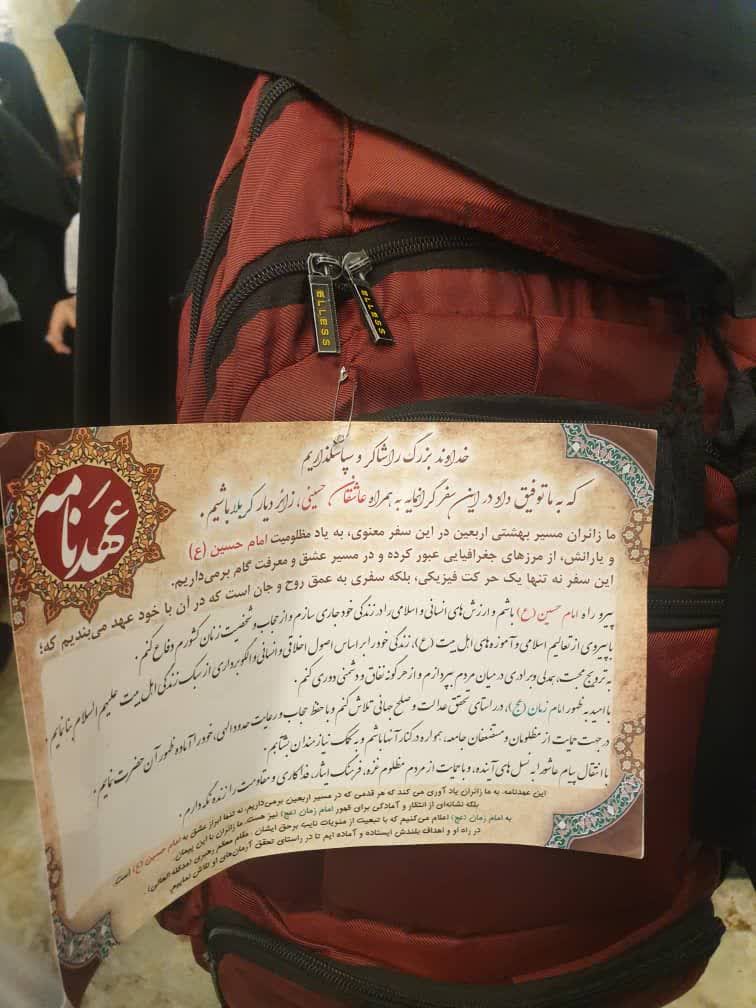 ELLESS
ELLESS
عهدنامه
خداوند بزرگ را شاکر و سپاسگذاریم
که به ما توفیق داد در این سفر گرانمایه به همراه عاشقان حسینی، زائر دیار کربلا باشیم.
ما زائران مسیر بهشتی اربعین در این سفر معنوی، به یاد مظلومیت امام حسین (ع)
و یارانش، از مرزهای جغرافیایی عبور کرده و در مسیر عشق و معرفت گام برمی‌داریم.
این سفر نه تنها یک حرکت فیزیکی، بلکه سفری به عمق روح و جان است که در آن با خود عهد می‌بندیم که؛
پیرو راه امام حسین (ع) باشم و ارزش های انسانی و اسلامی را در زندگی خود جاری سازم و از حجاب و شخصیت زنان کشورم دفاع کنم.
با پیروی از تعالیم اسلامی و آموزه های اهل بیت (ع)، زندگی خود را بر اساس اصول اخلاقی و انسانی و الگوبرداری از سبک زندگی اهل بیت علیهم السلام بنا نمایم.
به ترویج محبت، همدلی و برادری در میان مردم بپردازم و از هر گونه نفاق و دشمنی دوری کنم.
با امید به ظهور امام زمان (عج)، در راستای تحقق عدالت و صلح جهانی تلاش کنم و با حفظ حجاب و رعایت حدود الهی، خود را آماده ظهور آن حضرت نمایم.
در جهت حمایت از مظلومان و مستضعفان جامعه، همواره در کنار آنها باشم و به کمک نیازمندان بشتابم.
با انتقال پیام عاشورا به نسل های آینده، و با حمایت از مردم مظلوم غزه، فرهنگ ایثار، فداکاری و مقاومت را زنده نگه دارم.
این عهدنامه، به ما زائران یاد آوری می کند که هر قدمی که در مسیر اربعین برمی‌داریم، نه تنها ابراز عشق به امام حسین (ع) است،
بلکه نشانه‌ای از انتظار و آمادگی برای ظهور امام زمان (عج) نیز هست. ما زائران با این پیمان،
به امام زمان (عج) اعلام می‌کنیم که با تبعیت از منویات نایب برحق ایشان، مقام معظم رهبری (مدظله العالی)،
در راه او و اهداف بلندش ایستاده و آماده ایم تا در راستای تحقق آرمان‌های او تلاش نماییم.